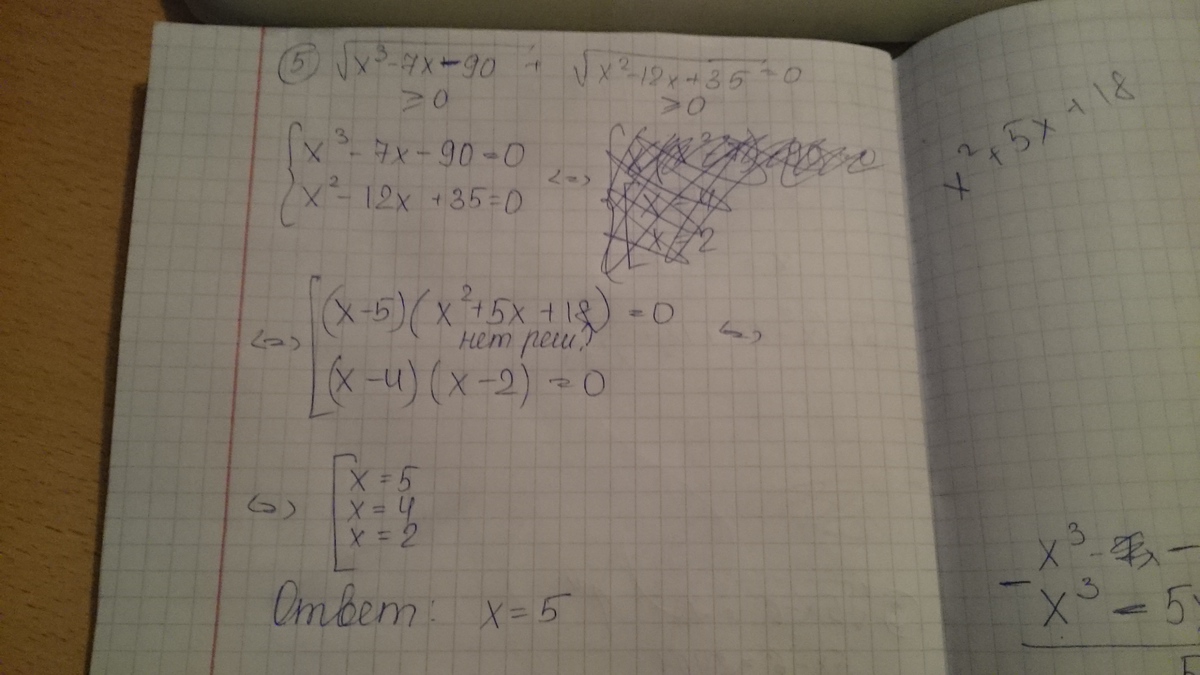 ⑤ √(x³-7x-90) + √(x²-12x+35) = 0
≥0 ≥0
{ x³-7x-90=0
{ x²-12x+35=0 <=>
x=4
x=2
<=> [ (x-5)(x²+5x+18)=0 <=>
нет реш.
(x-4)(x-2)=0
<=> [ x=5
x=4
x=2
Ответ: x=5
x²+5x+18
x³-
- x³-5